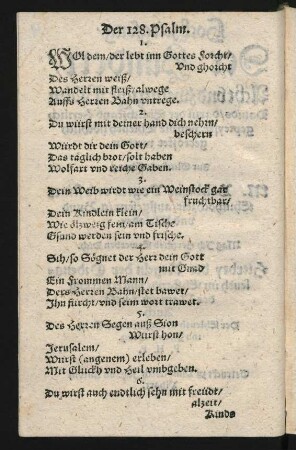 Der 128. Psalm.
1.
WOl dem/ der lebt inn Gottes Forcht/
Vnd ghorcht
Des Herren weiß/
Wandelt mit fleiß/ alwege
Auffs Herren Bahn vntrege.
2.
Du würst mit deiner hand dich nehrn/
beschern
Würdt dir dein Gott/
Das täglich brot/ solt haben
Wolfart vnd reiche Gaben.
3.
Dein Weib wirdt wie ein Weinstock gar
fruchtbar/
Dein Kindlein klein/
Wie ölzweig fein/ am Tische
Gsund werden sein vnd frische.
4.
Sih/ so Sögnet der Herr dein Gott
mit Gnad
Ein Frommen Mann/
Ders Herren Bahn/ stet bawet/
Ihn fürcht/ vnd seim wort trawet.
5.
Des Herren Segen auß Sion
Würst hon/
Jerusalem/
Würst (angenem) erleben/
Mit Glückh vnd Heil vmbgeben.
6.
Du wirst auch endtlich sehn mit freüdt/
alzeit/
Kinds